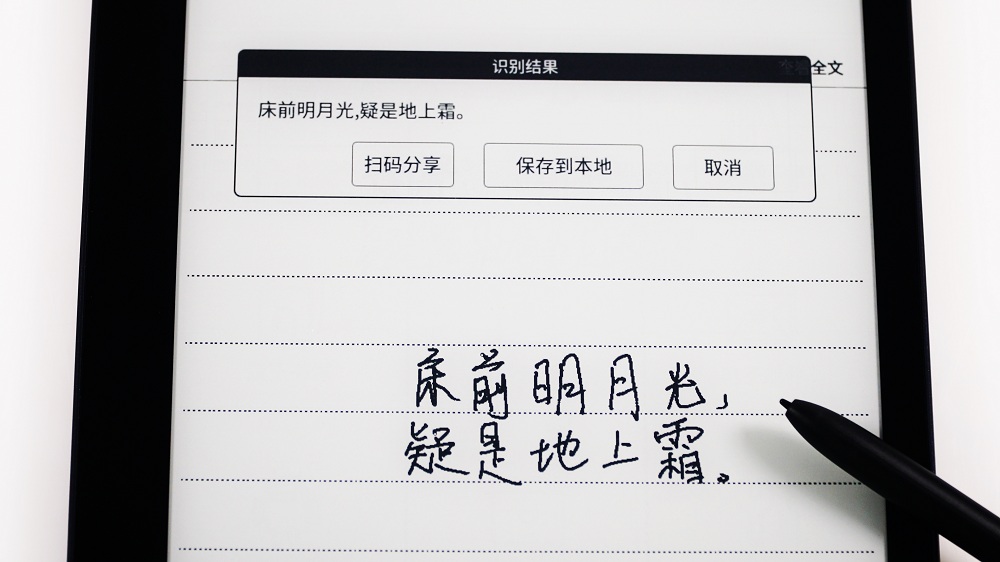 识别结果
全文
床前明月光,疑是地上霜。
扫码分享 保存到本地 取消
床前明月光，
疑是地上霜。